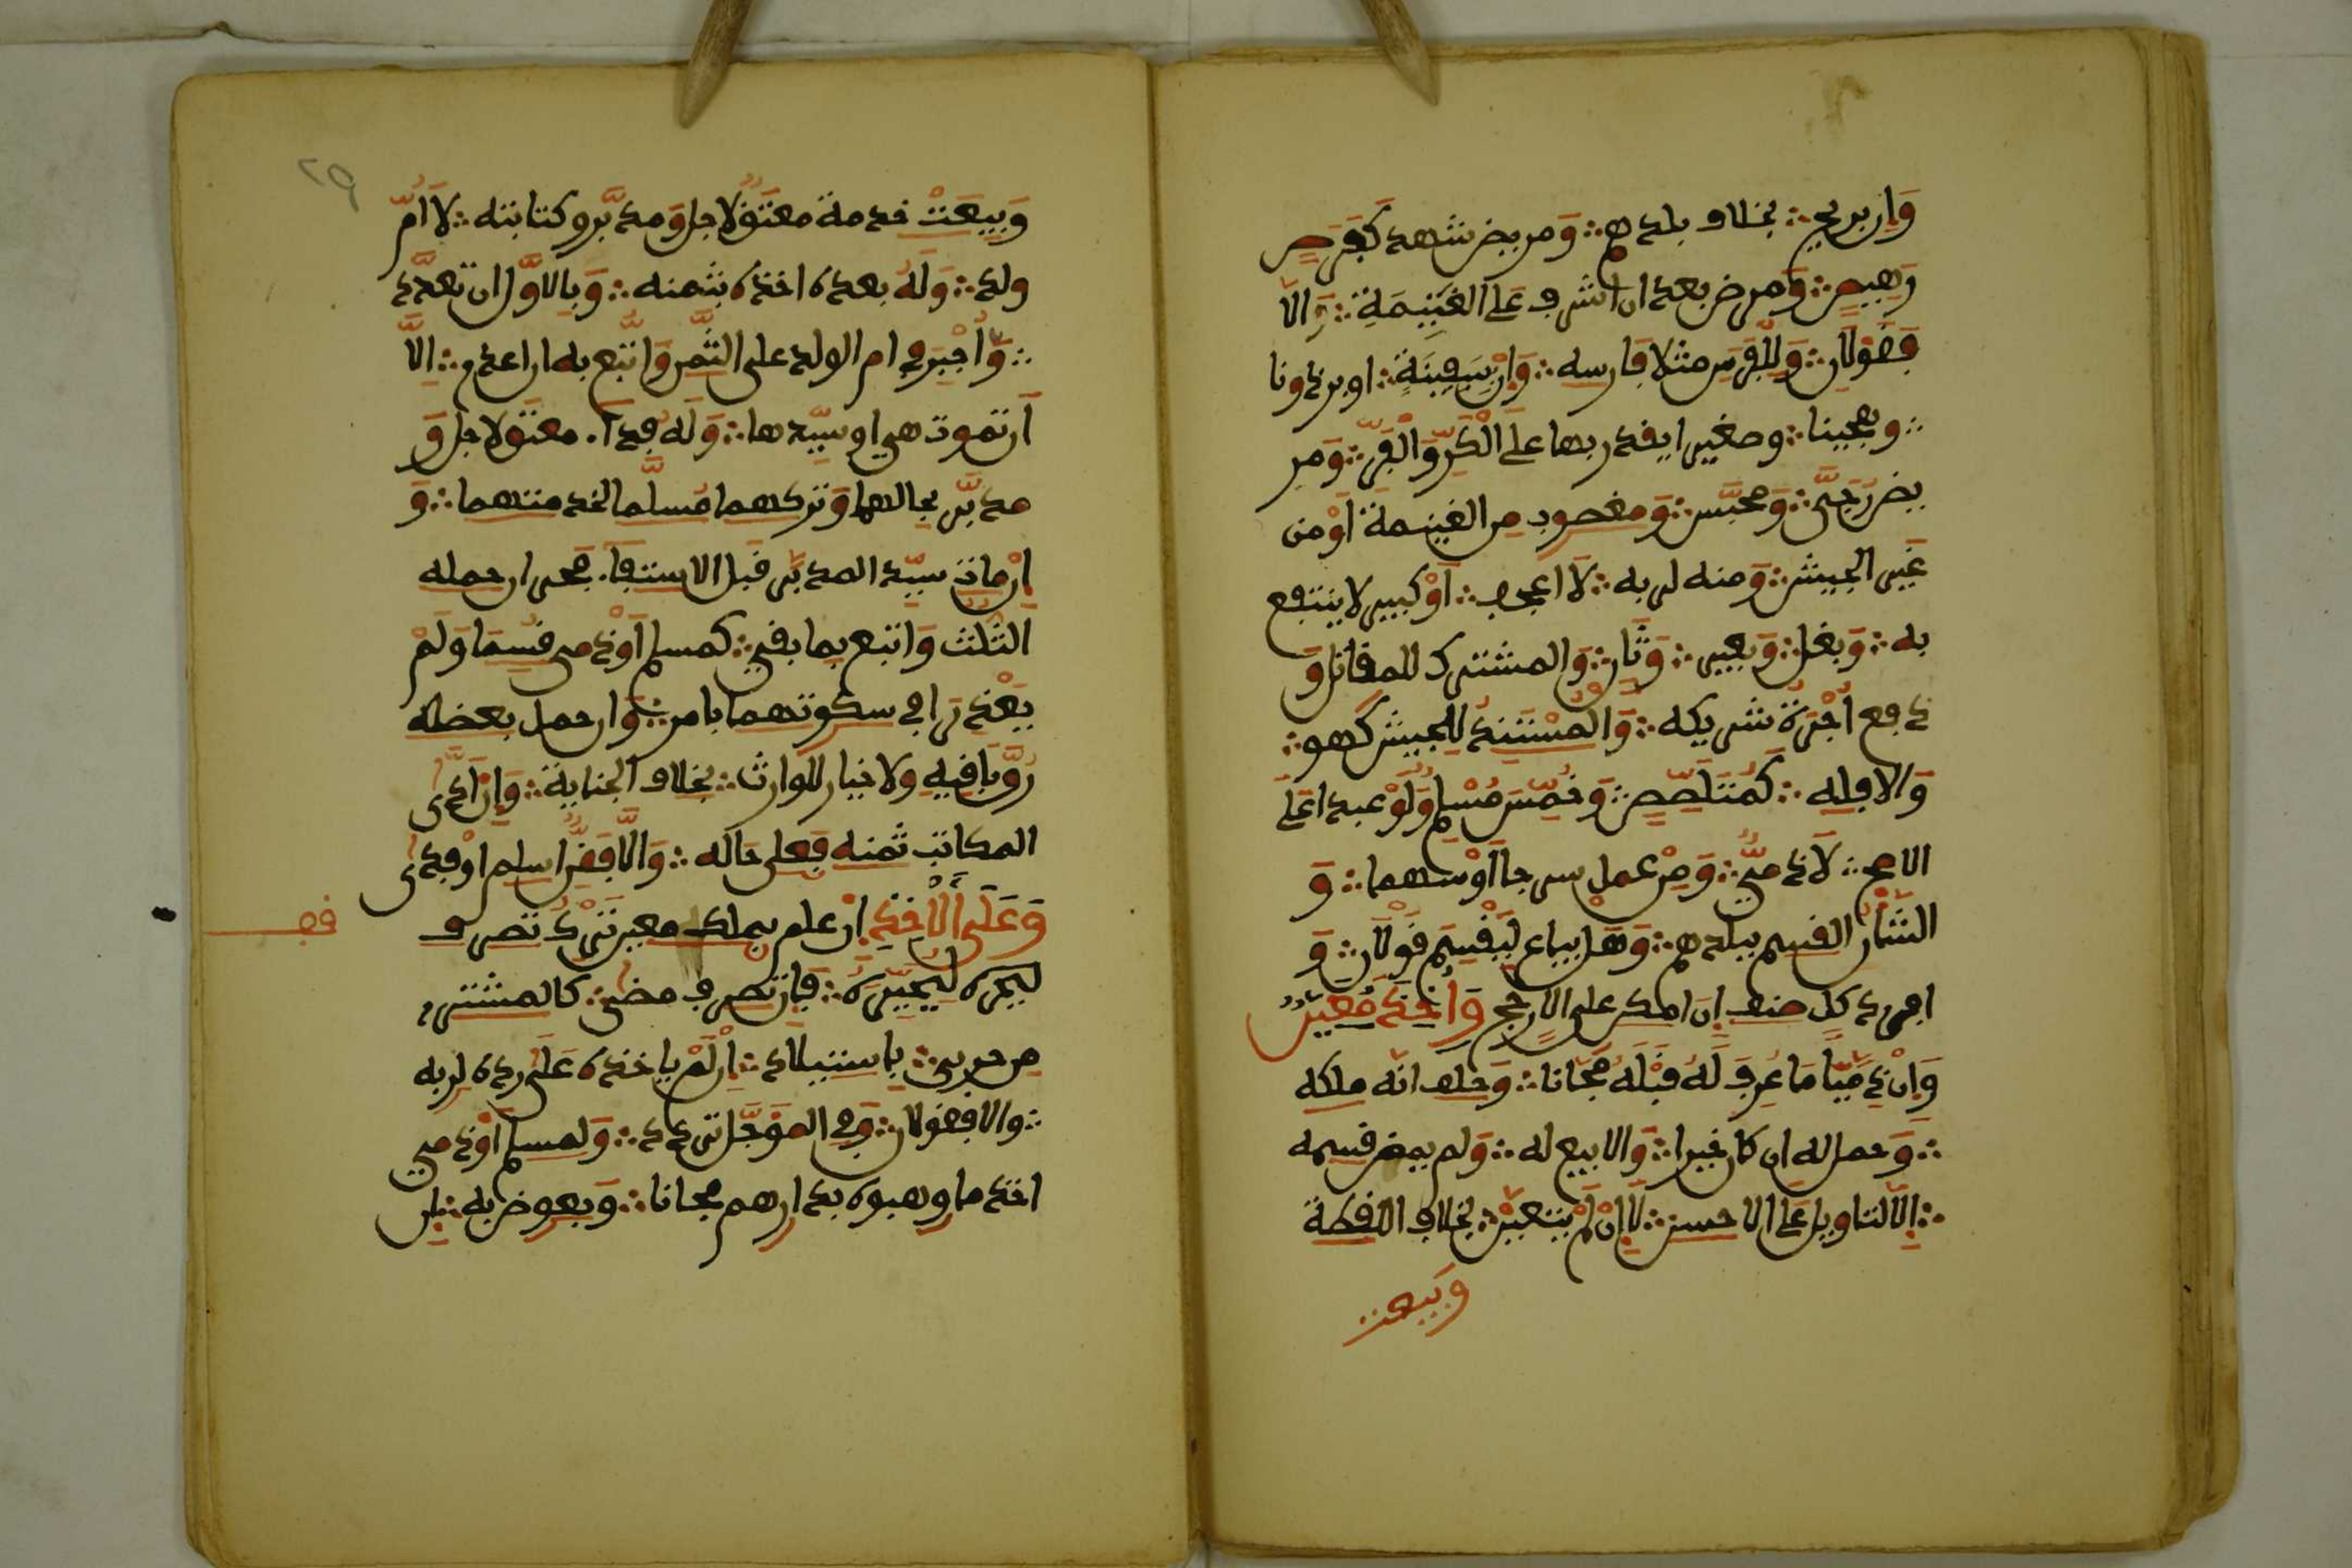 وَإن بريح ∴ بخلاف بلدهم ∴ وَمريض شهد كَفرس
رَهِيصٍ ∴ وَمرض بعد ان اشرف عَلَى الغَنِيمَةِ ∴ وَالا
فَقَوْلَانِ ∴ وَلِلْفَرَسِ مثلا فَارسه ∴ وَإنْ بِسَفِينَةٍ ∴ او برذونا
∴ وهجينا ∴ وصغيرا يقدر بها عَلَى الْكَرِّ وَالْفَرِّ ∴ وَمرِ
يض رُجِيَ ∴ وَمحبّس ∴ وَمغصوب مِن الغنيمة أوْ من
غَيْر الجيش ∴ وَمنه لربه ∴ لَا اعجف ∴ أوْ كبير لا ينتفع
به ∴ وَبغل ∴ وَبعير ∴ وَثَان ∴ وَالمشترك للمقاتل وَ
دفع أُجْرَةَ شريكه ∴ وَالْمُسْتَنِدُ لِلجيش كَهو ∴
وَالا فله ∴ كَمُتَلَصِّصٍ ∴ وَخمّسَ مُسْلِمٌ وَلَوْ عبدا عَلَى
الاصح ∴ لَا ذمِّيٌّ ∴ وَمَنْ عمل سرجا أوْ سهما ∴ وَ
الشَّأْنُ القسم ببلدهم ∴ وَهَلْ يباع لِيُقْسَم قَوْلَان ∴ وَ
افرد كلّ صنف إن امكن على الارجح وَأخَذَ مُعَيَّنٌ
وَإنْ ذِمِّيّاً مَا عُرِفَ لَهُ قَبْلَهُ مَجّانا ∴ وَحلف انّه ملكه
∴ وَحمل له ان كان خيرا ∴ وَالا بيع له ∴ وَلم يمض قسمه
∴ إلّا لتاويل عَلَى الاحسن ∴ لَا إنْ لَمْ يتعيّنْ ∴ بخلاف اللقطة
وَبيعت
٢٩
وَبِيعَتْ خدمة معتَقٌ لاجل وَمدبَّر وكتابته ∴ لا أُمّ
ولد ∴ وَلَهُ بعده اخذه بثمنه ∴ وَبالاوّل ان تعدّد
∴ وَأُجْبِرَ في ام الولد على الثَّمن وَاتُّبع به ان اعدم ∴ الاّ
أن تموت هي او سيّدها ∴ وَلَهُ فداء معتق لاجل وَ
مدبَّر لحالهما وَتركهما مُسلَّما لخدمتهما ∴ وَ
إنْ مات سيّد المدبّر قبل الاستيفاء فحر ان حمله
الثّلث وَاتبع بما بقي ∴ كمسلم أوْ ذمي قُسِمَا وَلَمْ
يَعْذرَا في سكوتهما بامر ∴ وَان حمل بعضه
رُقَّ بَاقيهِ ولا خيار للوارث ∴ بخلاف الجناية ∴ وَإنْ أدَّى
المكاتب ثمنه فَعلى حَاله ∴ وَالّا فَقِنٌّ اسلم اوْ فدي
وَعَلَى الآخِذِ إنْ علم بملك معين تَرْكُ تصرف
فصـ
ليخيره لِيُخَيِّرَهُ ∴ فَإن تصرف مضى ∴ كالمشتري
من حربي ∴ باستيلاد ∴ إنْ لَمْ ياخذه عَلَى رده لربه
∴ والا فقولان ∴ وَفي المؤجّل تردد ∴ وَلمسلم أوْ ذمي
اخذ ما وهبوه بدارهم مجانا ∴ وَبعوض به ∴ إن